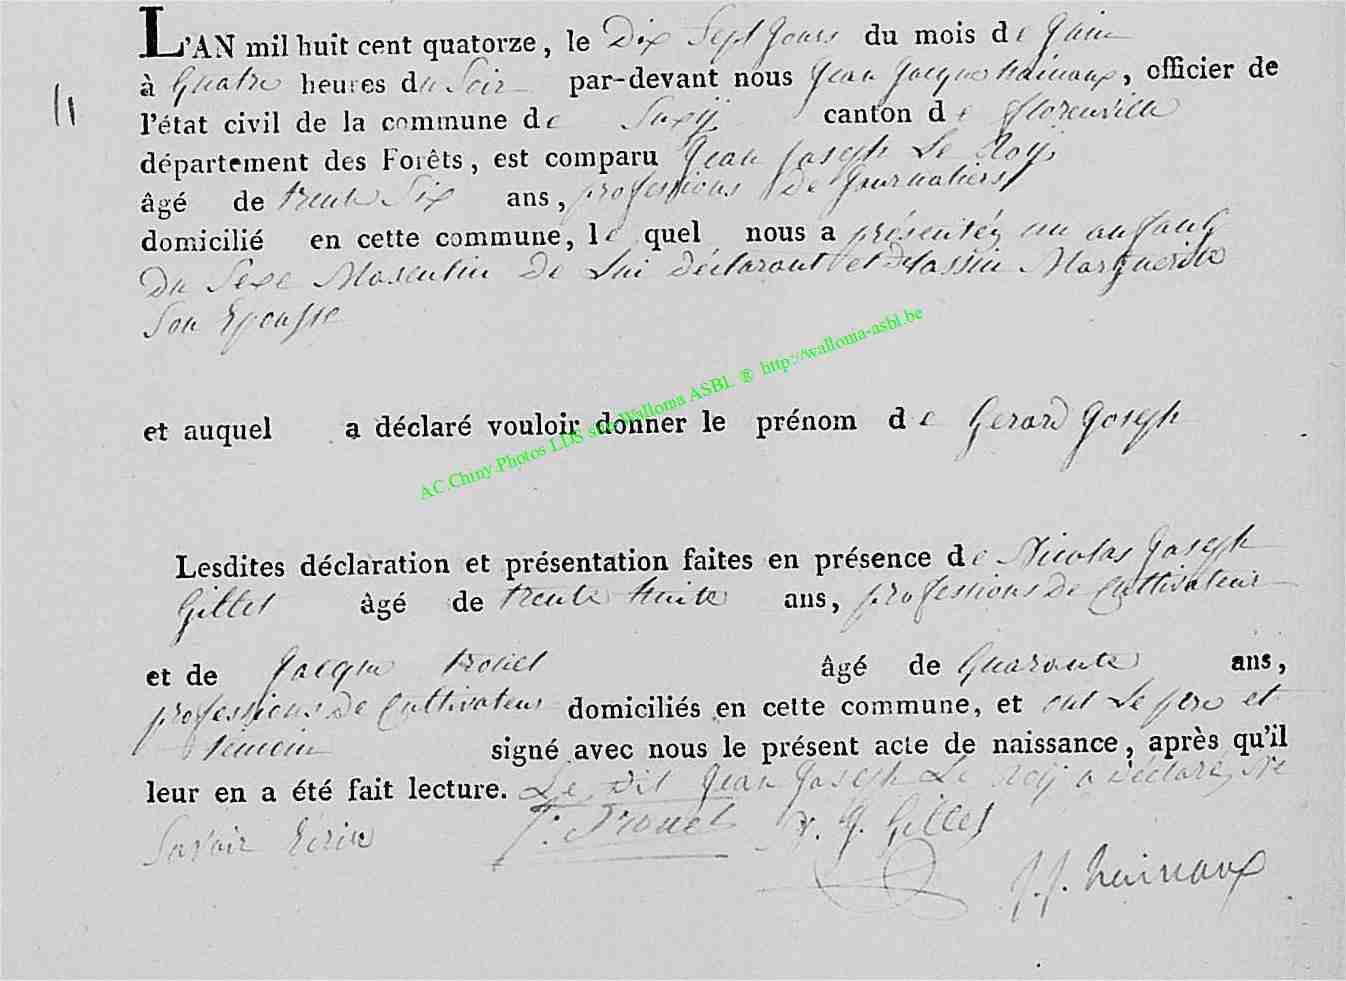 L'AN mil huit cent quatorze, le Dix Sept Jours du mois de Juin
11
à Quatre heures du Soir par-devant nous Jean Jacque hainaux, officier de
l'état civil de la commune de Suxij canton de florenville
département des Forêts, est comparu Jean Joseph Le Roij
âgé de trente Six ans, professions De Journaliers
domicilié en cette commune, le quel nous a présentéz un enfant
Du Sexe Masculin De Lui déclarant et Massin Marguerite
Son Epousse
et auquel a déclaré vouloir donner le prénom de Gerard Joseph
AC.Chiny.Photos LDS sur Wallonia ASBL ® http://wallonia-asbl.be
Lesdites déclaration et présentation faites en présence de Nicolas Joseph
Gillet âgé de trente huite ans, professions De Cultivateur
et de Jacque trouet âgé de Quarante ans,
professions De Cultivateur domiciliés en cette commune, et ont Le pere et
témoin signé avec nous le présent acte de naissance, après qu'il
leur en a été fait lecture. Le Dit Jean Joseph Le Roij a déclaré Ne
Savoir Ecrire J. Trouet N. J. Gillet
J. J. hainaux